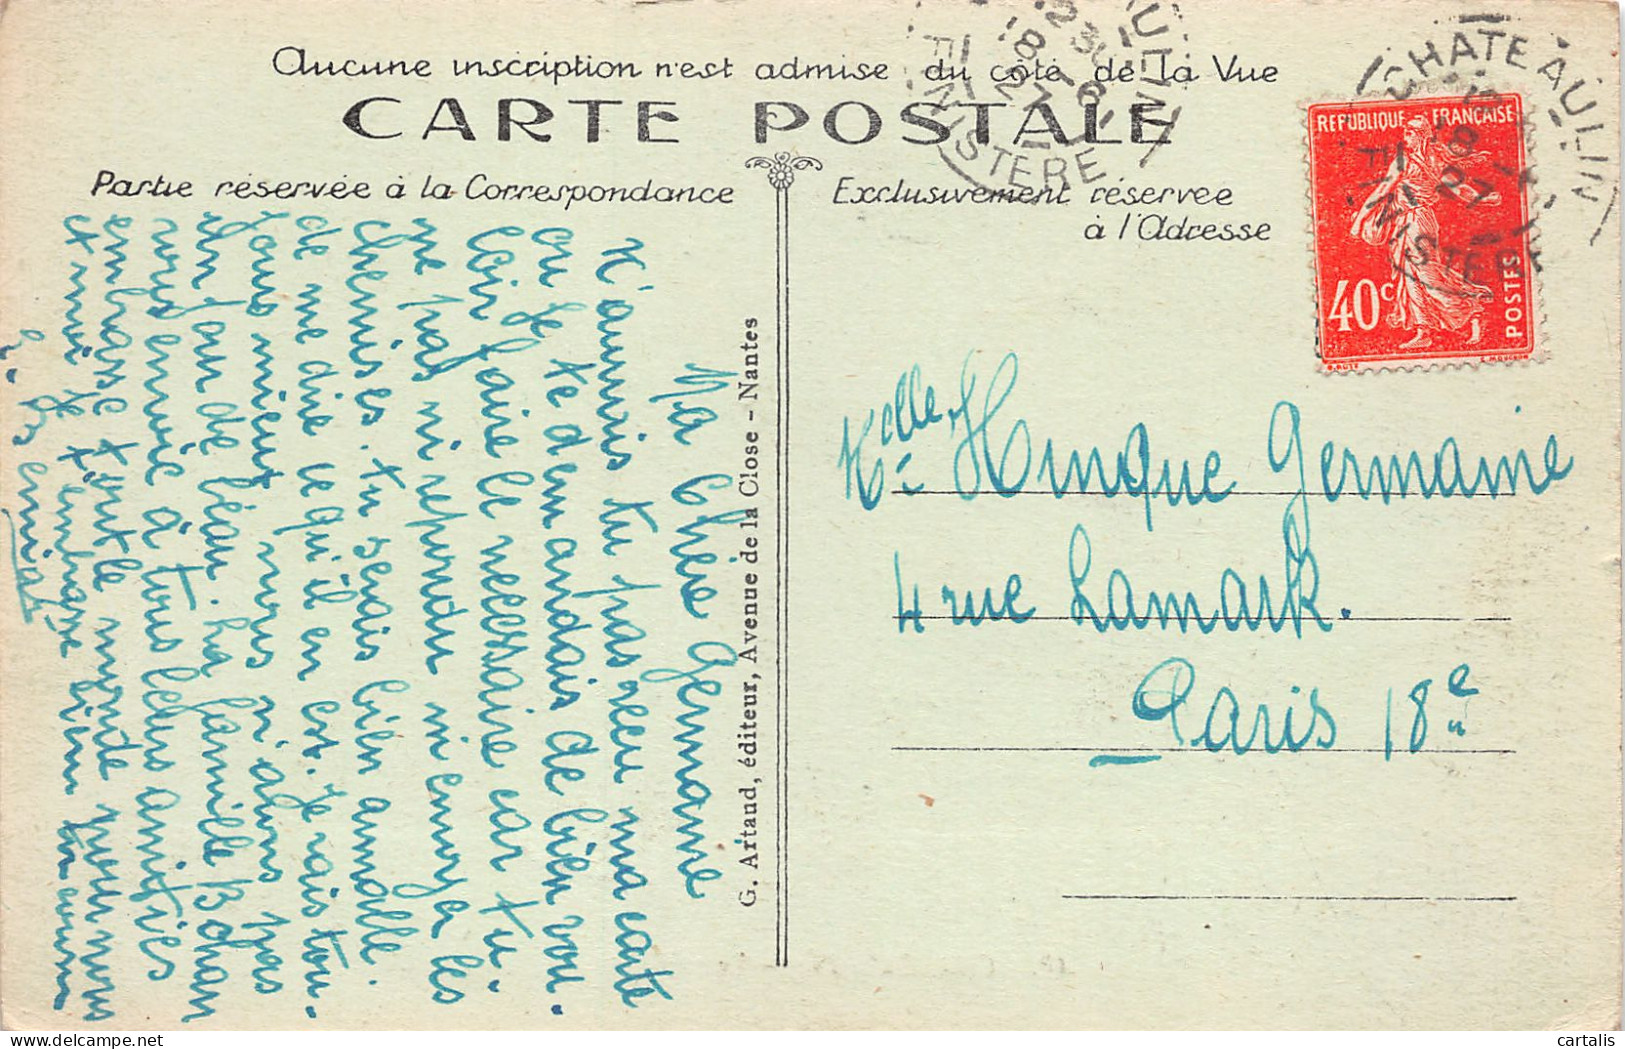 Aucune inscription n'est admise du côté de la Vue
CARTE POSTALE
Partie réservée à la Correspondance
Exclusivement réservée
à l'Adresse
CHATEAULIN
FINISTÈRE
18
27
CHATEAULIN
18
27
FINISTERE
REPUBLIQUE FRANÇAISE
40c
POSTES
Ma Chère Germaine
N'aurais tu pas reçu ma carte
ou je te demandais de bien vou.
loir faire le necessaire car tu.
ne pas ni repondu ni envoyé les
chemises. tu serais bien aimable.
de me dire ce qu'il en est. Je vais tou.
jours mieux nous n'avons pas
un jour de beau. La famille Bohan
vous envoie à tous leurs amitiés
embrasse toute le monde pour nous
et moi je t'embrasse bien
G. Artaud, éditeur, Avenue de la Close - Nantes
Melle Hinque Germaine
4 rue Lamark.
Paris 18e
cartalis
delcampe.net